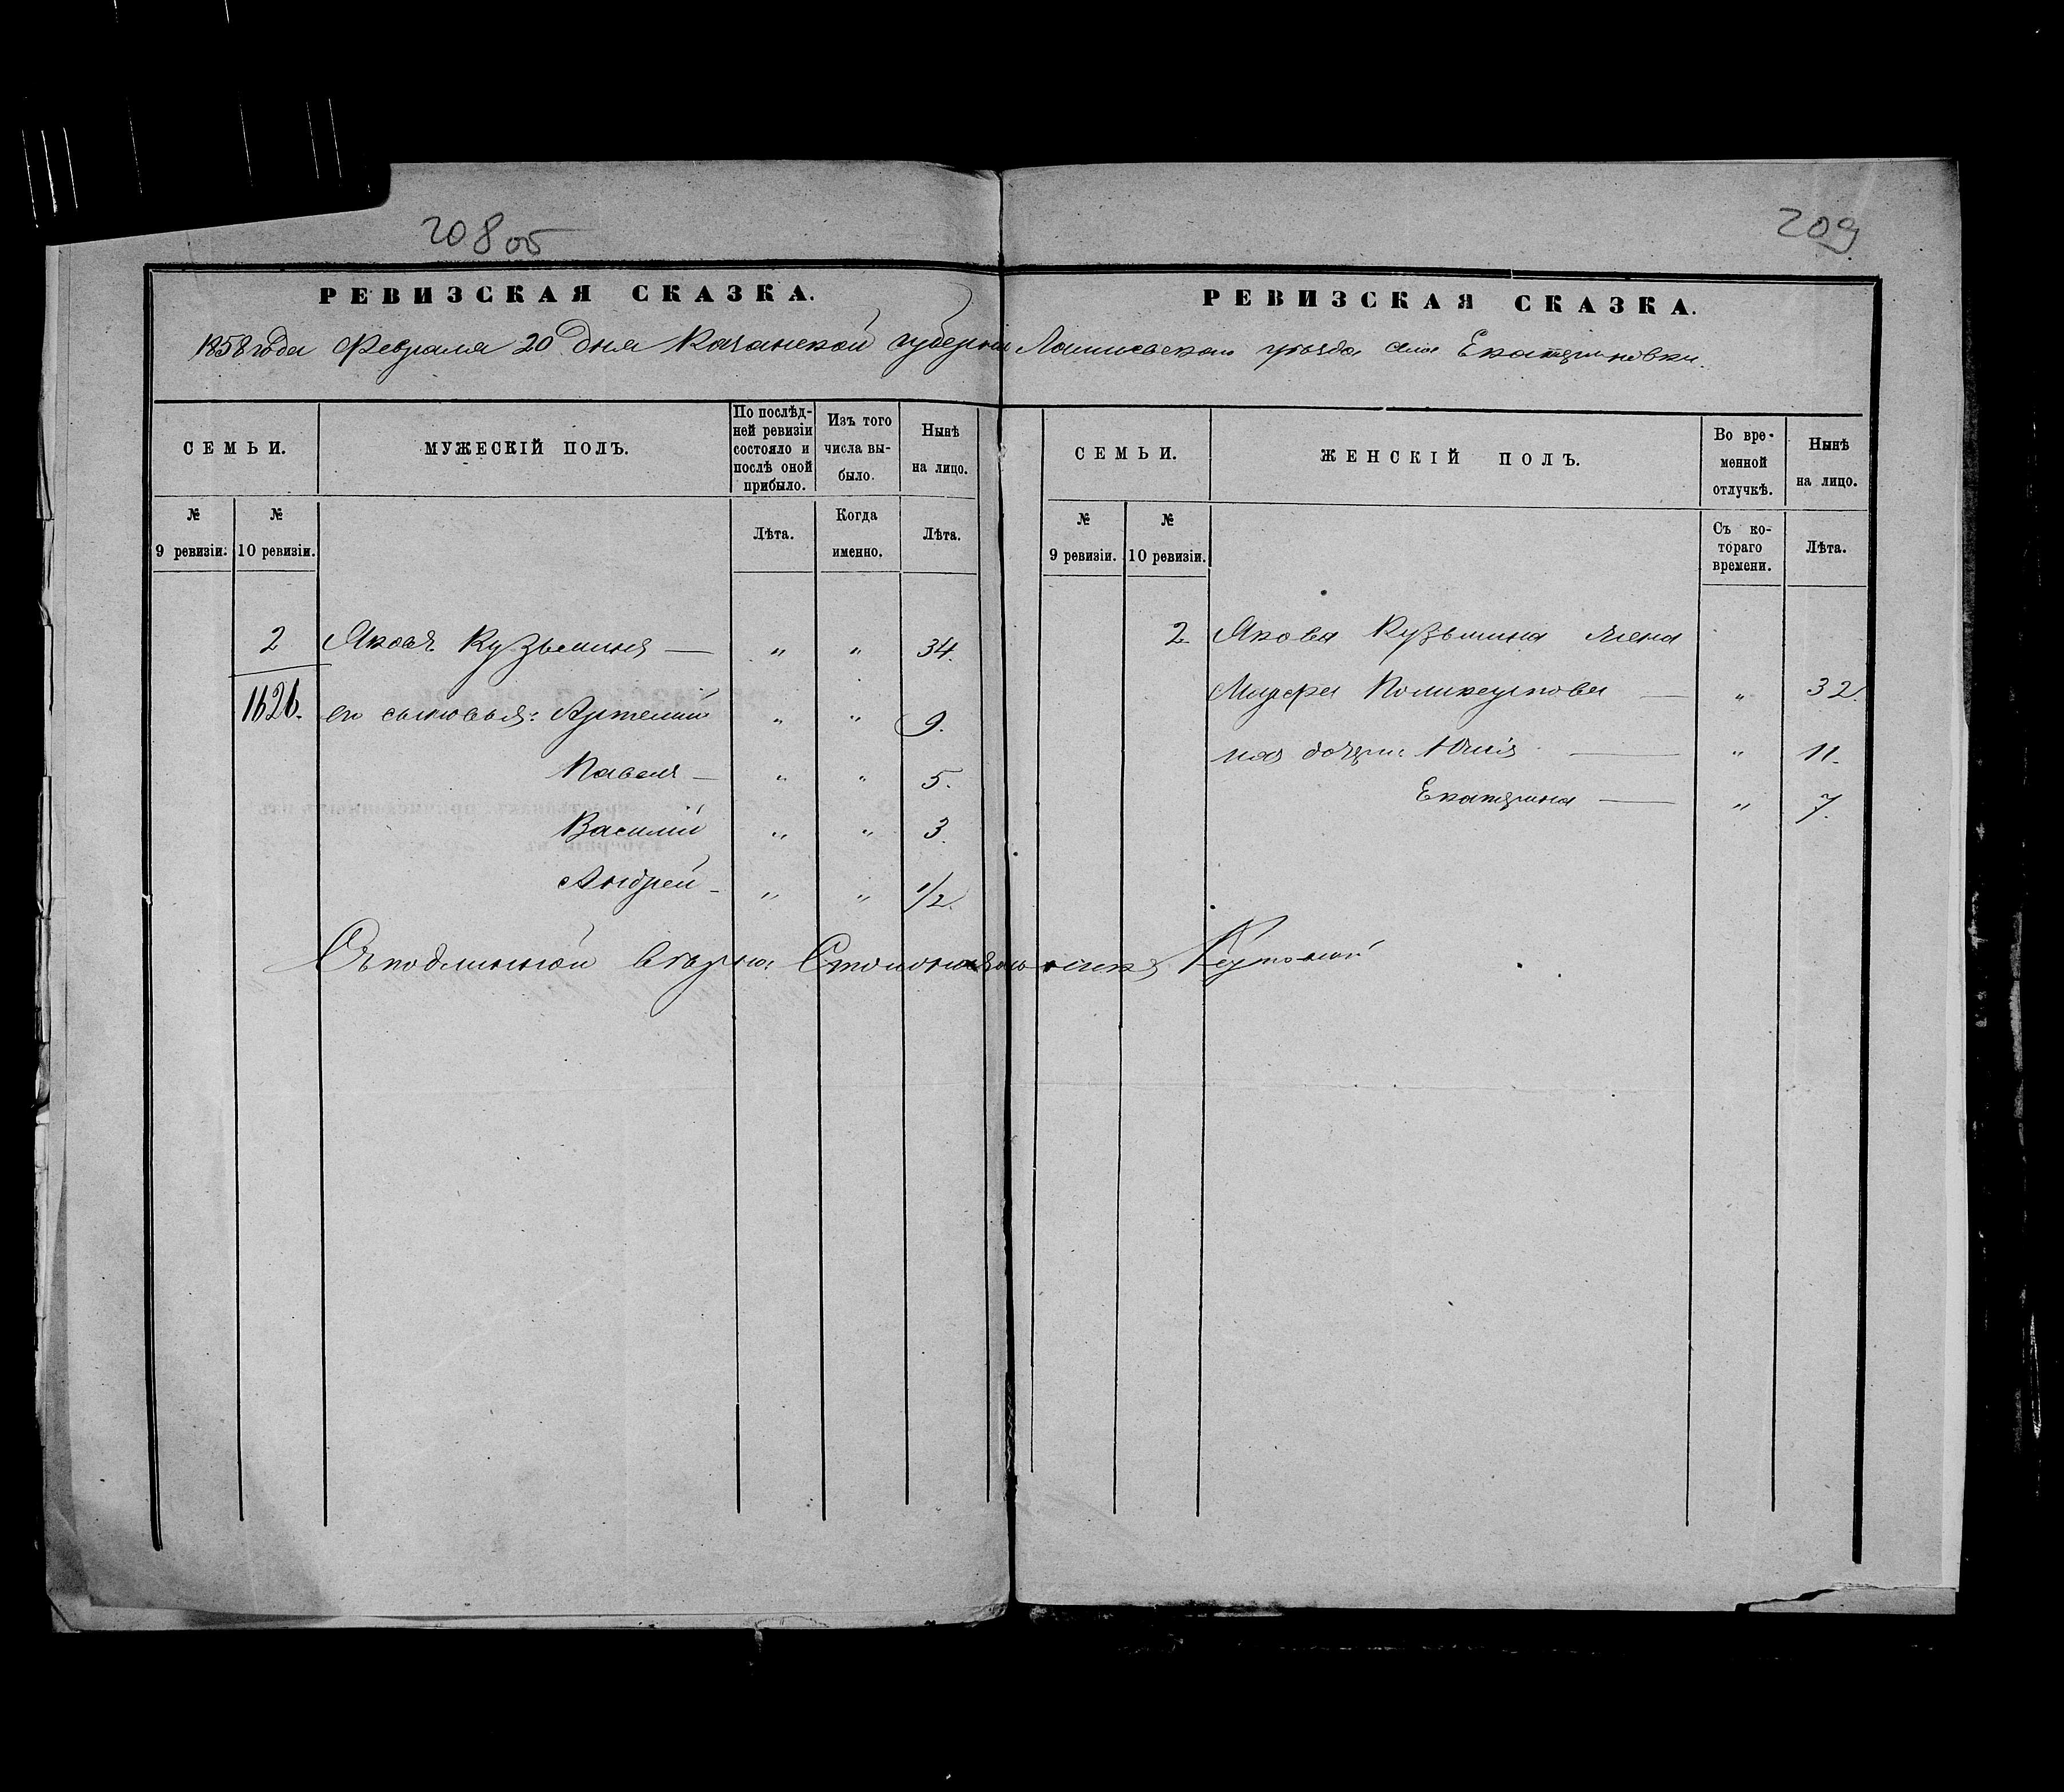 208 об
РЕВИЗСКАЯ СКАЗКА.
1858 года Февраля 20 дня Казанской губерніи
СЕМЬИ.
МУЖЕСКІЙ ПОЛЪ.
По послѣд-
ней ревизіи
состояло и
послѣ оной
прибыло.
Изъ того
числа вы-
было.
Нынѣ
на лицо.
№
9 ревизіи.
№
10 ревизіи.
Лѣта.
Когда
именно.
Лѣта.
2 Яковъ Кузьминъ — " " 34.
1626. его сыновья: Артемій " " 9.
Павелъ — " " 5.
Василій " " 3.
Андрей — " " 1/2.
Съ подлинной вѣрно: Столоначальникъ
209
РЕВИЗСКАЯ СКАЗКА.
Лаишевскаго уѣзда села Екатериновки.
СЕМЬИ.
ЖЕНСКІЙ ПОЛЪ.
Во вре-
менной
отлучкѣ.
Нынѣ
на лицо.
№
9 ревизіи.
№
10 ревизіи.
Съ ко-
тораго
времени.
Лѣта.
2. Якова Кузьмина жена
Поликарпова — " 32.
ихъ дочери: Юлія — " 11.
Екатерина — " 7.